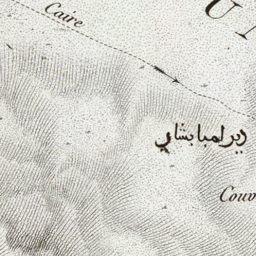 Caire
U
دير لمبابشاي
Couv